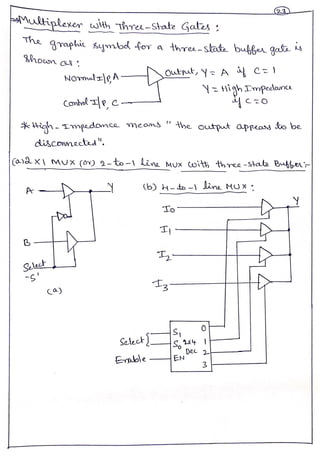 27
⇒ Multiplexer with Three-State Gates :
The graphic symbol for a three-state buffer gate is
shown as :
Normal I/P, A
Output, Y = A if C = 1
Y = High Impedance
if C = 0
Control I/P, C
* High-Impedance means " the output appears to be
disconnected".
(a) 2x1 MUX (or) 2-to-1 line MUX with three-state Buffer:-
(b) 4-to-1 line MUX :
A
Y
B
Select
-'S'
(a)
I0
Y
I1
I2
I3
Select
S1
0
S0
2x4
1
Dec
2
Enable
EN
3